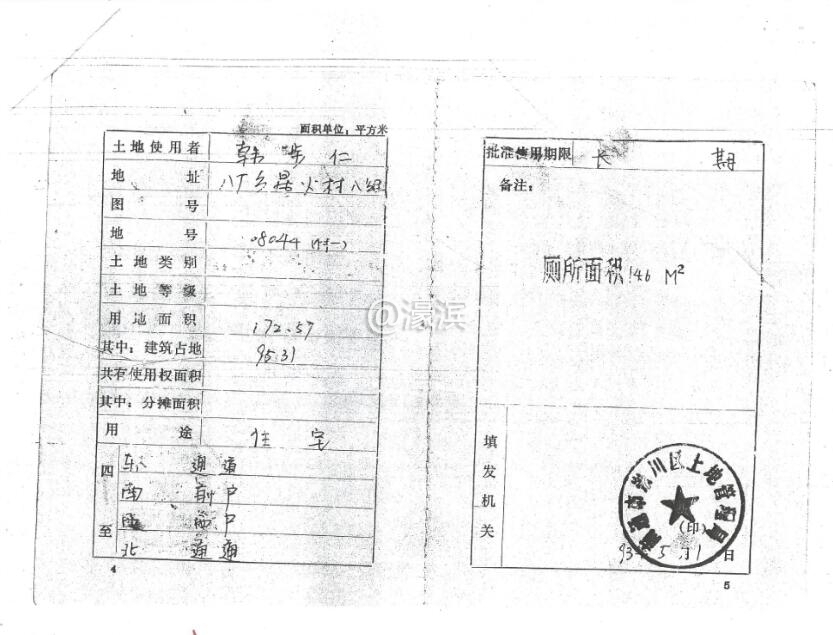 面积单位：平方米
土地使用者 韩 步 仁
地 址 八厂乡 村八组
图 号
地 号 08044
土地类别
土地等级
用地面积 172.57
其中：建筑占地 95.31
共有使用权面积
其中：分摊面积
用 途 住 宅
四至
东 通道
南 前户
西 西户
北 通道
4
批准使用期限 长 期
备注：
厕所面积1.46 M²
填发机关
南通市崇川区土地管理局
（印）
93年5月1日
5
@濠滨